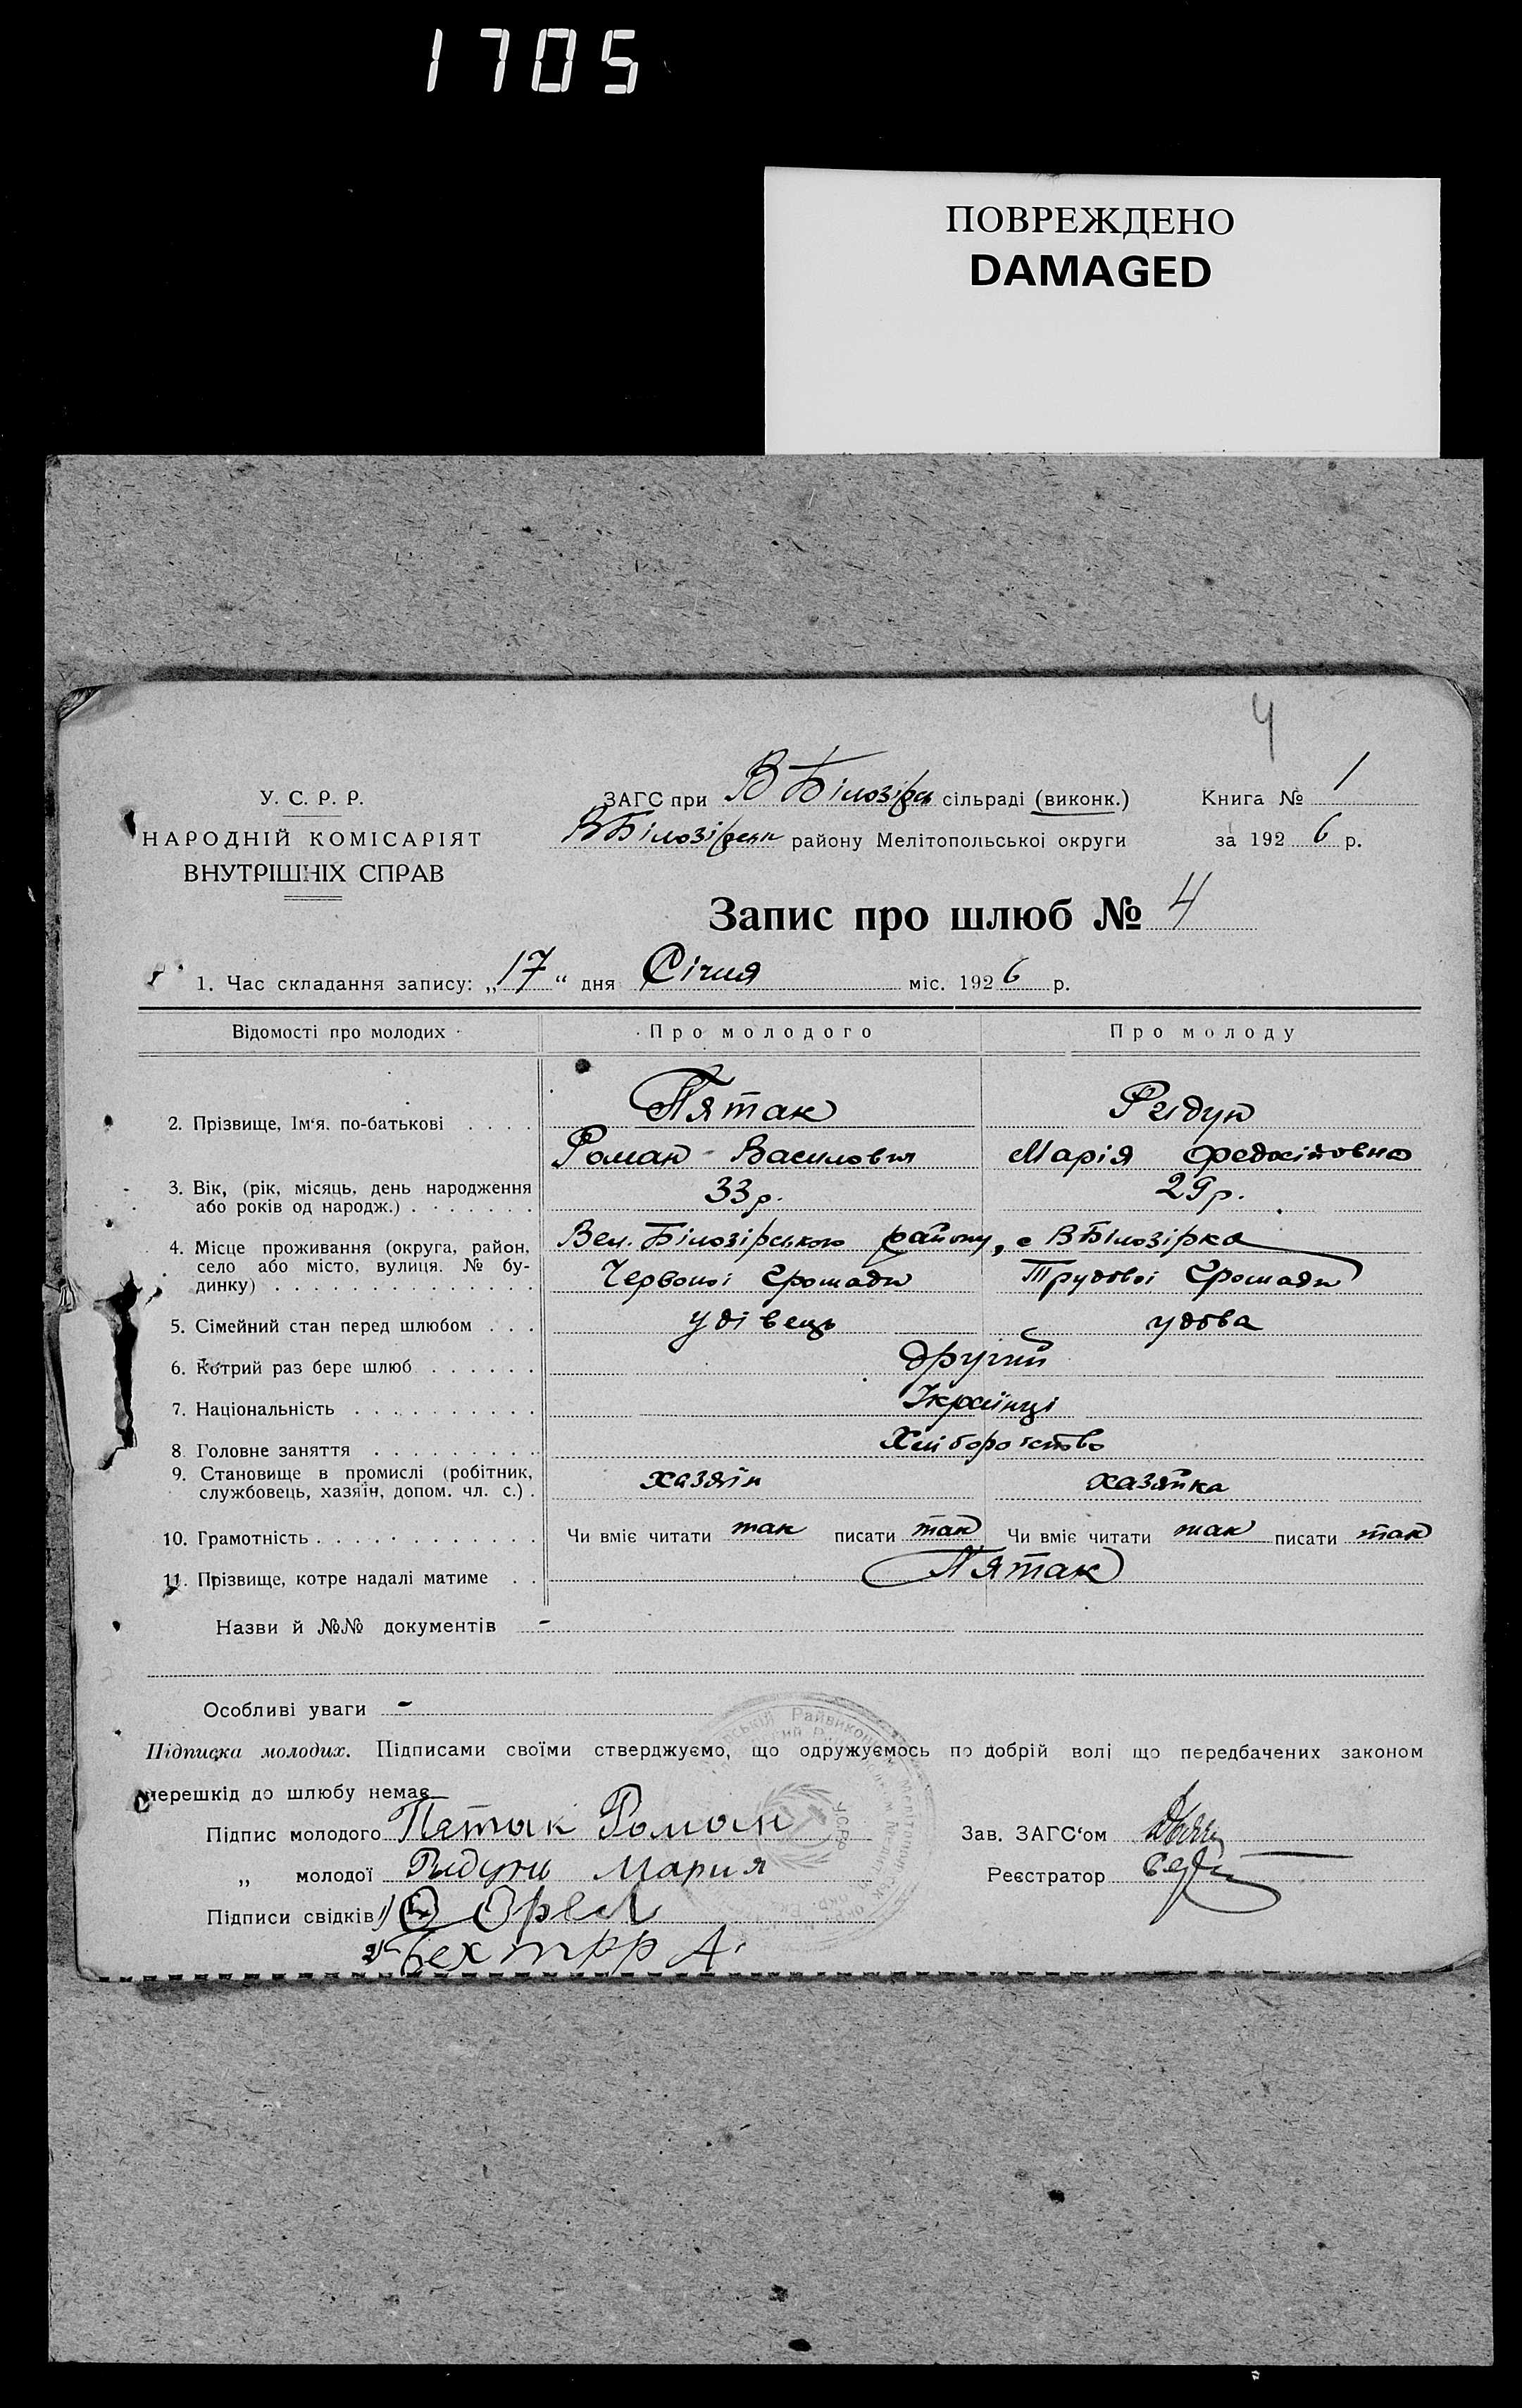 1705
ПОВРЕЖДЕНО
DAMAGED
4
У. С. Р. Р.
НАРОДНІЙ КОМІСАРІЯТ
ВНУТРІШНІХ СПРАВ
ЗАГС при В Білозірськ сільраді (виконк.)
ВБілозірськ району Мелітопольської округи
Книга № 1
за 1926 р.
Запис про шлюб № 4
1. Час складання запису: „17“ дня Січня міс. 1926 р.
Відомості про молодих Про молодого Про молоду
2. Прізвище, Ім‘я. по-батькові . . . . П'ятак
Роман Василович Марія Федосітовна
3. Вік, (рік, місяць, день народження або років од народж.) . . . . . . . 33 р. 29 р.
4. Місце проживання (округа, район, село або місто, вулиця. № будинку) . . . . . . . . . . . . . . Вел. Білозірського району, с ВБілозірка
Червоної Громади Трудової Громади
5. Сімейний стан перед шлюбом . . . удівець удова
6. Котрий раз бере шлюб . . . . . . другий
7. Національність . . . . . . . . . . Українці
8. Головне заняття . . . . . . . . . . Хліборобство
9. Становище в промислі (робітник, службовець, хазяїн, допом. чл. с.) . хазяїн хазяйка
10. Грамотність . . . . . . . . . . . . Чи вміє читати так писати так Чи вміє читати так писати так
11. Прізвище, котре надалі матиме . . П'ятак
Назви й №№ документів -
Особливі уваги -
Підписка молодих. Підписами своїми стверджуємо, що одружуємось по добрій волі що передбачених законом
перешкід до шлюбу немає
Підпис молодого Пятак Роман
Зав. ЗАГС‘ом
„ молодої Мария
Реєстратор
Підписи свідків 1) Орел
2) Бехтер А.